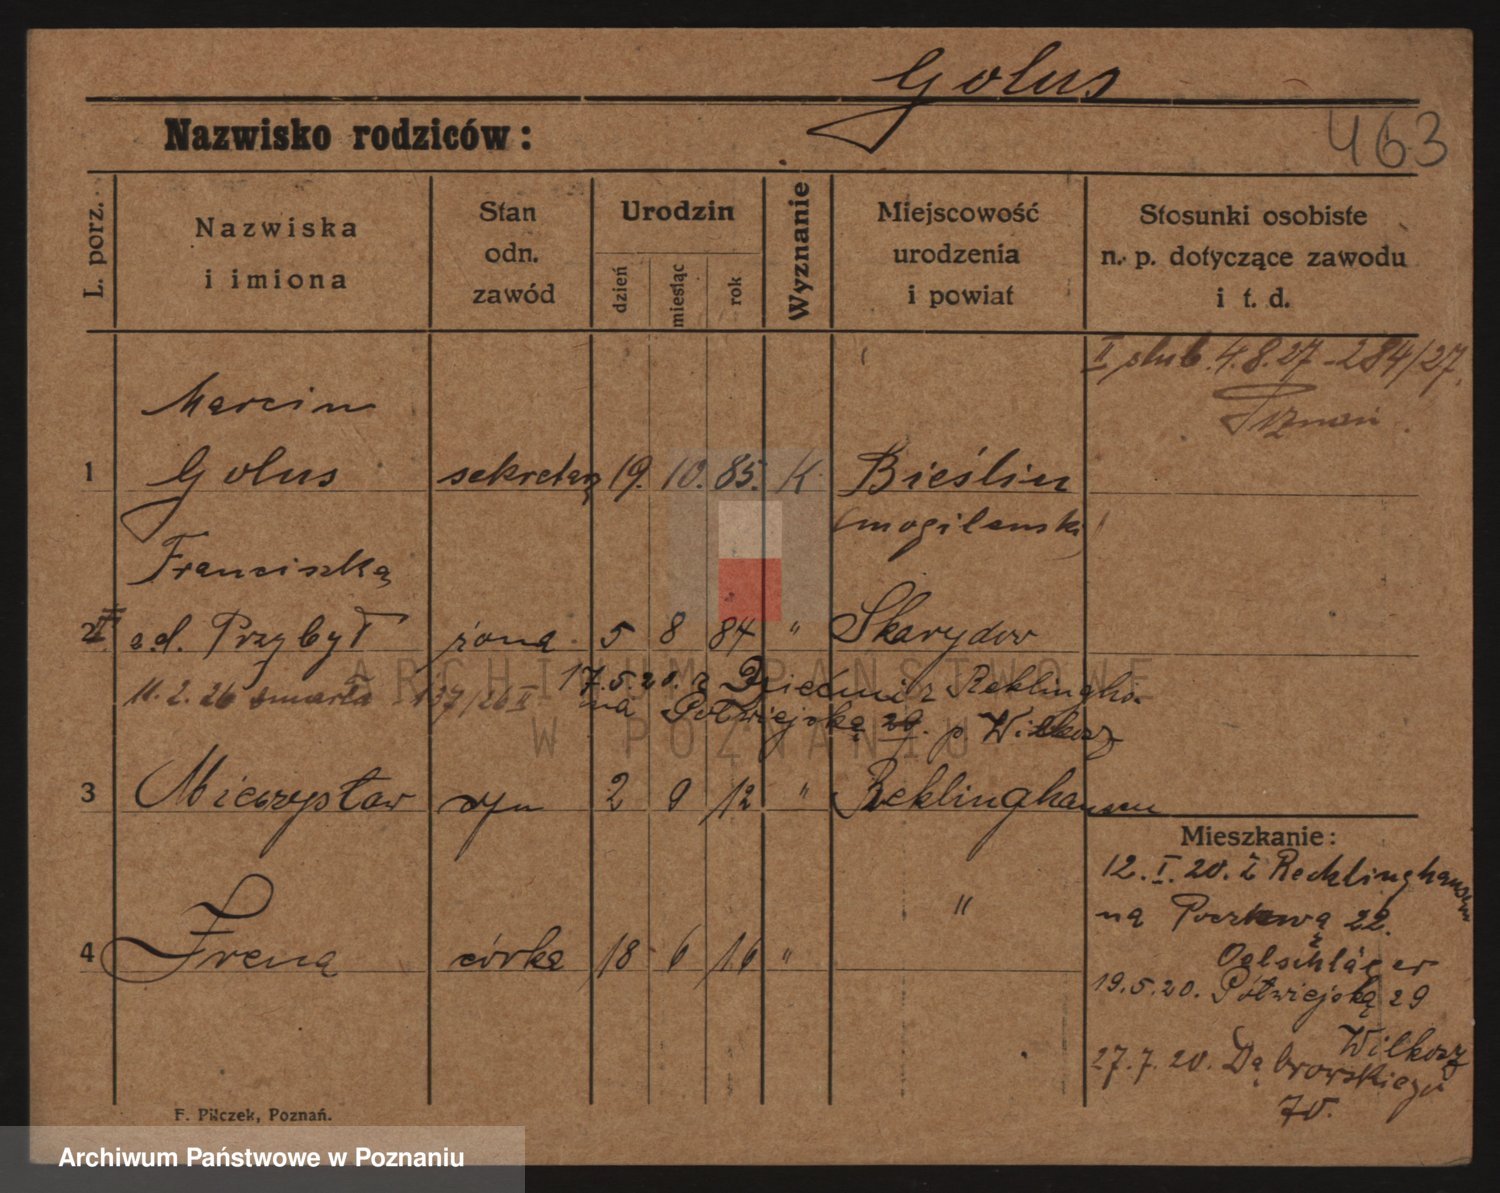 Golus
Nazwisko rodziców:
463
L. porz.
Nazwiska
i imiona
Stan
odn.
zawód
Urodzin
dzień
miesiąc
rok
Wyznanie
Miejscowość
urodzenia
i powiat
Stosunki osobiste
n. p. dotyczące zawodu
i t. d.
II ślub. 4.8.27 - 284/27.
Poznań.
Marcin
1 Golus sekretarz 19. 10. 85. K. Bieślin
(mogilenski)
Franciszka
2 od. Przybył żona 5 8 84 " Skarydow
11.2.26 zmarła 137/26 II
17.5.20. z Dziećmi z Reklingho.
na Półwiejską 29. p Wilkosz
3 Mieczysław syn 2 9 12 " Recklinghausen
4 Irena córka 18 6 16 " "
Mieszkanie:
12. I. 20. z Recklinghausen
na Pocztową 22.
Oelschläger
19.5.20. Półwiejską 29
Wilkosz
27.7.20. Dąbrowskiego
70.
F. Pilczek, Poznań.
ARCHIWUM PAŃSTWOWE
W POZNANIU
Archiwum Państwowe w Poznaniu